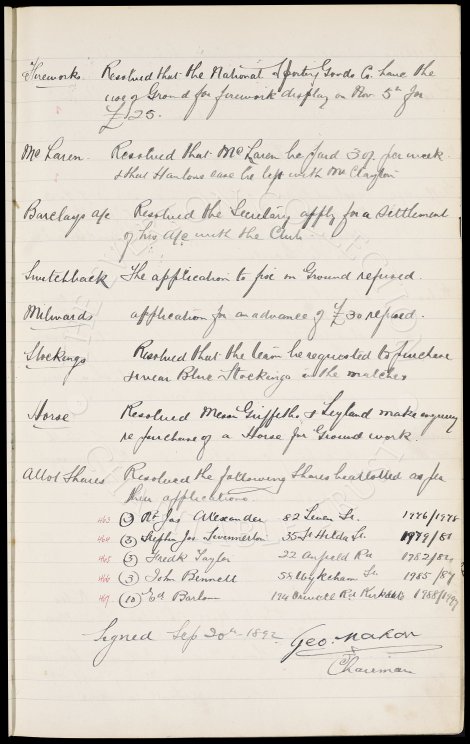 Fireworks Resolved that the National Sporting Goods Co. have the
use of Ground for firework display on Nov 5th for
£25.
McLaren. Resolved that McLaren be paid 30/- per week
& that Hanlons case be left with Mr Clayton
Barclays a/c Resolved the Secretary apply for a settlement
of his a/c with the Club
Switchback The application to fix on Ground refused.
Milwards application for an advance of £30 refused.
Stockings Resolved that the team be requested to purchase
& wear Blue Stockings in the matches
Horse Resolved Messrs Griffiths & Leyland make enquiry
re purchase of a Horse for Ground work.
Allot Shares Resolved the following Shares be allotted as per
their applications.
463 (3) Rt Jas Alexander 82 Seven St. 1976/1978
464 (3) Stephen Jos 35 St Hilda St. 1979/81
465 (3) Fredk Taylor 22 Anfield Rd 1982/84
466 (3) John Bennett 58 Wykeham St. 1985/87
467 (10) Ed Barlow 194 Orwell Rd Kirkdale 1988/1997
Signed Sep 20th 1892 Geo. Mahon
Chairman